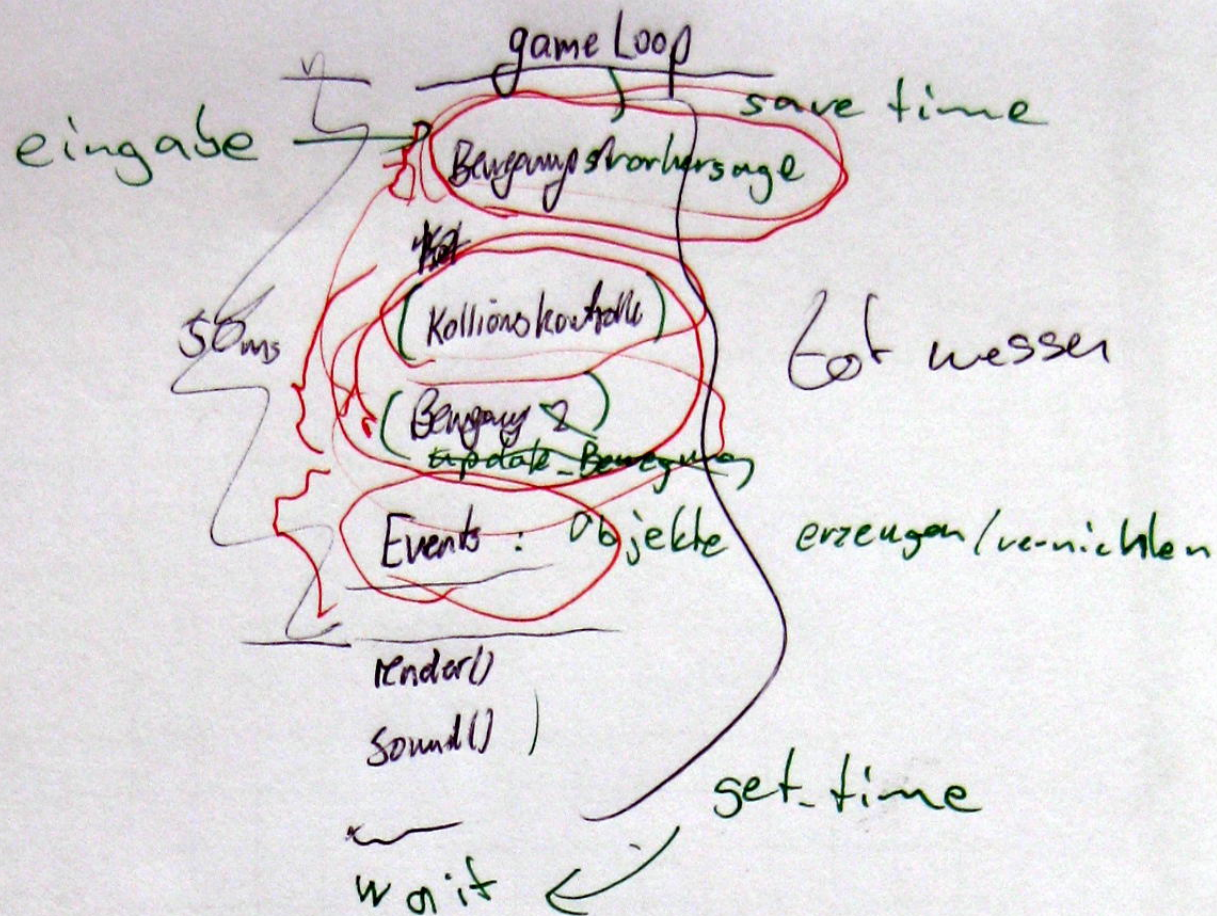 game Loop
save time
eingabe
Bewegungsvorhersage
(Kollionskontrolle)
50ms
tot messen
(Bewegung)
update_Bewegung
Events : Objekte erzeugen/vernichten
render()
sound()
get_time
wait